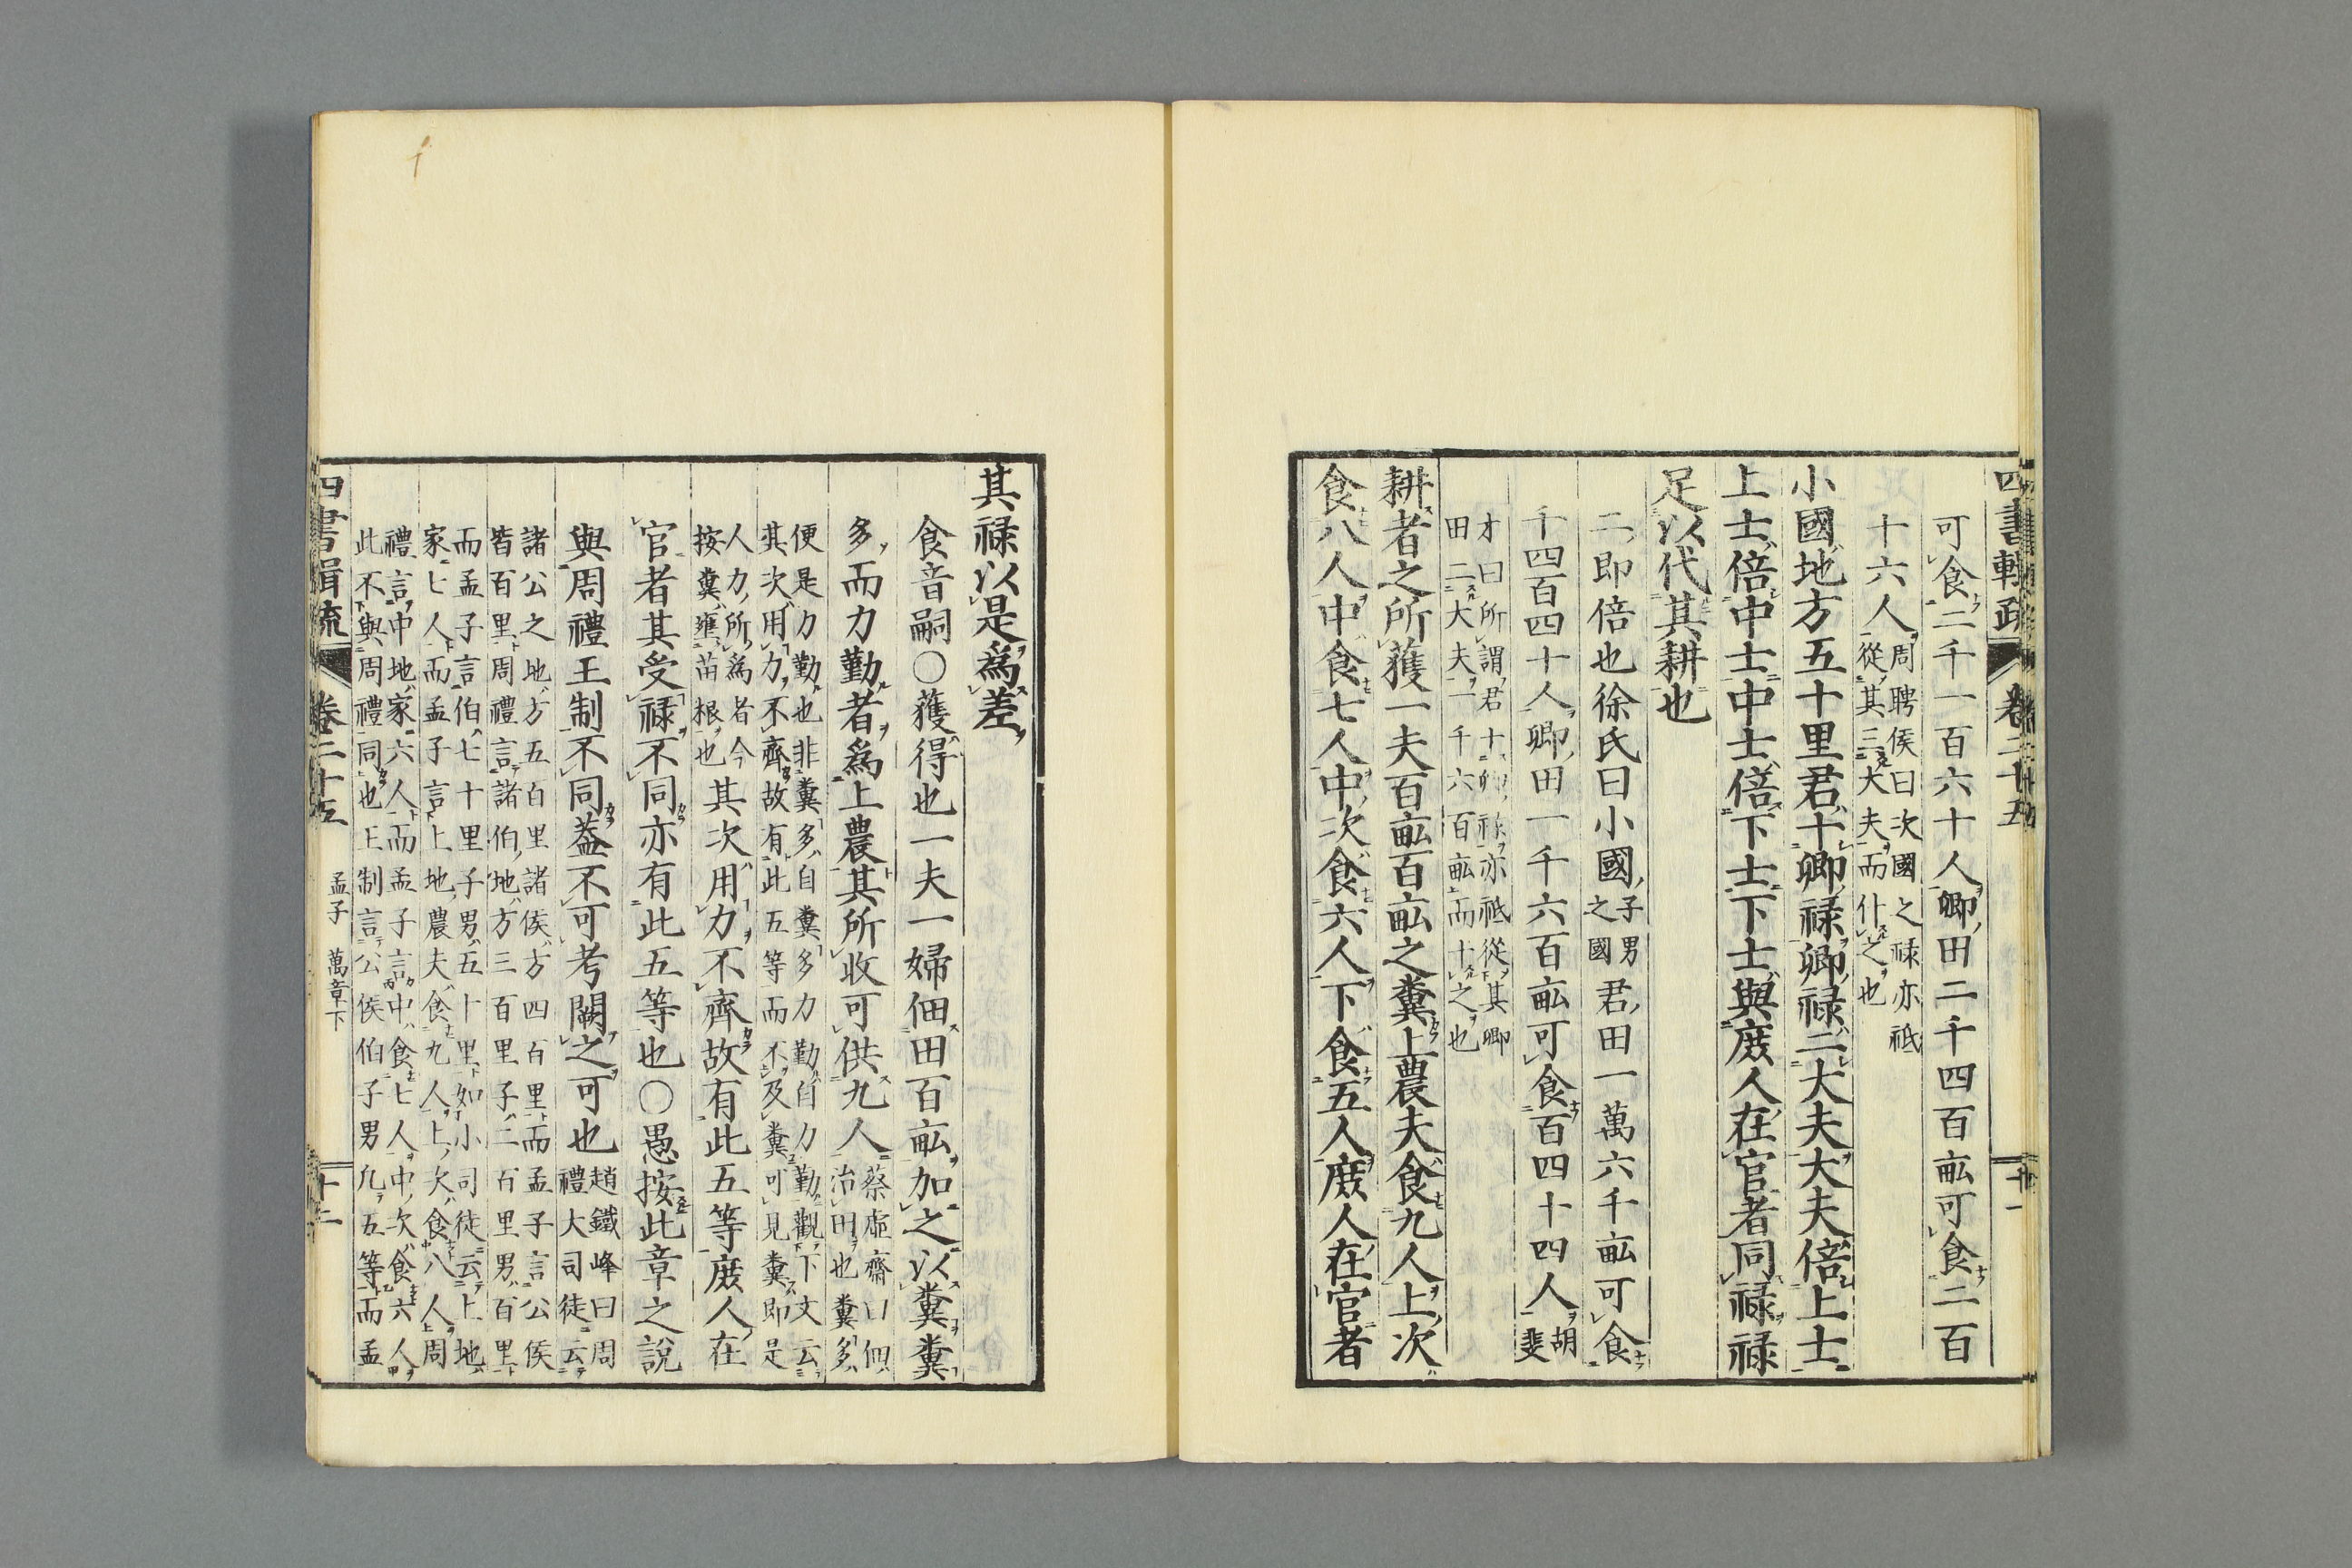 四書輯疏 卷二十五 十一
可食二千一百六十人卿田二千四百畝可食二百
十六人周聘侯曰次國之禄亦祗從其三大夫而什之也
小國地方五十里君十卿禄卿禄二大夫大夫倍上士
上士倍中士中士倍下士下士與庶人在官者同禄禄
足以代其耕也
二即倍也徐氏曰小國子男之國君田一萬六千畝可食
千四百四十人卿田一千六百畝可食百四十四人胡斐
才曰所謂君十卿禄亦祗從其卿田二大夫一千六百畝而十之也
耕者之所獲一夫百畝百畝之糞上農夫食九人上次
食八人中食七人中次食六人下食五人庶人在官者
其禄以是爲差
食音嗣○獲得也一夫一婦佃田百畝加之以糞糞
多而力勤者爲上農其所收可供九人蔡虛齋曰佃治田也糞多
便是力勤也非糞多自糞多力勤自力勤觀下文云其次用力不齊故有此五等而不及糞可見糞即是
人力所爲者今按糞壅苗根也其次用力不齊故有此五等庶人在
官者其受禄不同亦有此五等也○愚按此章之説
與周禮王制不同蓋不可考闕之可也趙鐵峰曰周禮大司徒云
諸公之地方五百里諸侯方四百里而孟子言公侯皆百里周禮言諸伯地方三百里子二百里男百里
而孟子言伯七十里子男五十里如小司徒云上地家七人而孟子言上地農夫食九人上次食八人周
禮言中地家六人而孟子言中食七人中次食六人此不與周禮同也王制言公侯伯子男凡五等而孟
四書輯疏 卷二十五 孟子 萬章下 十二